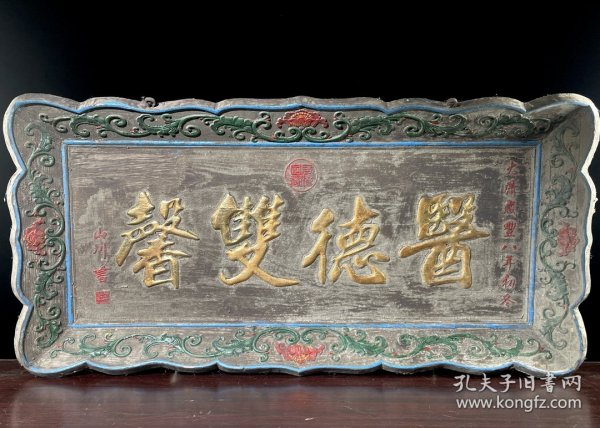 大清咸豐八年初冬
醫德雙馨
孔夫子旧书网
www.kongfz.com